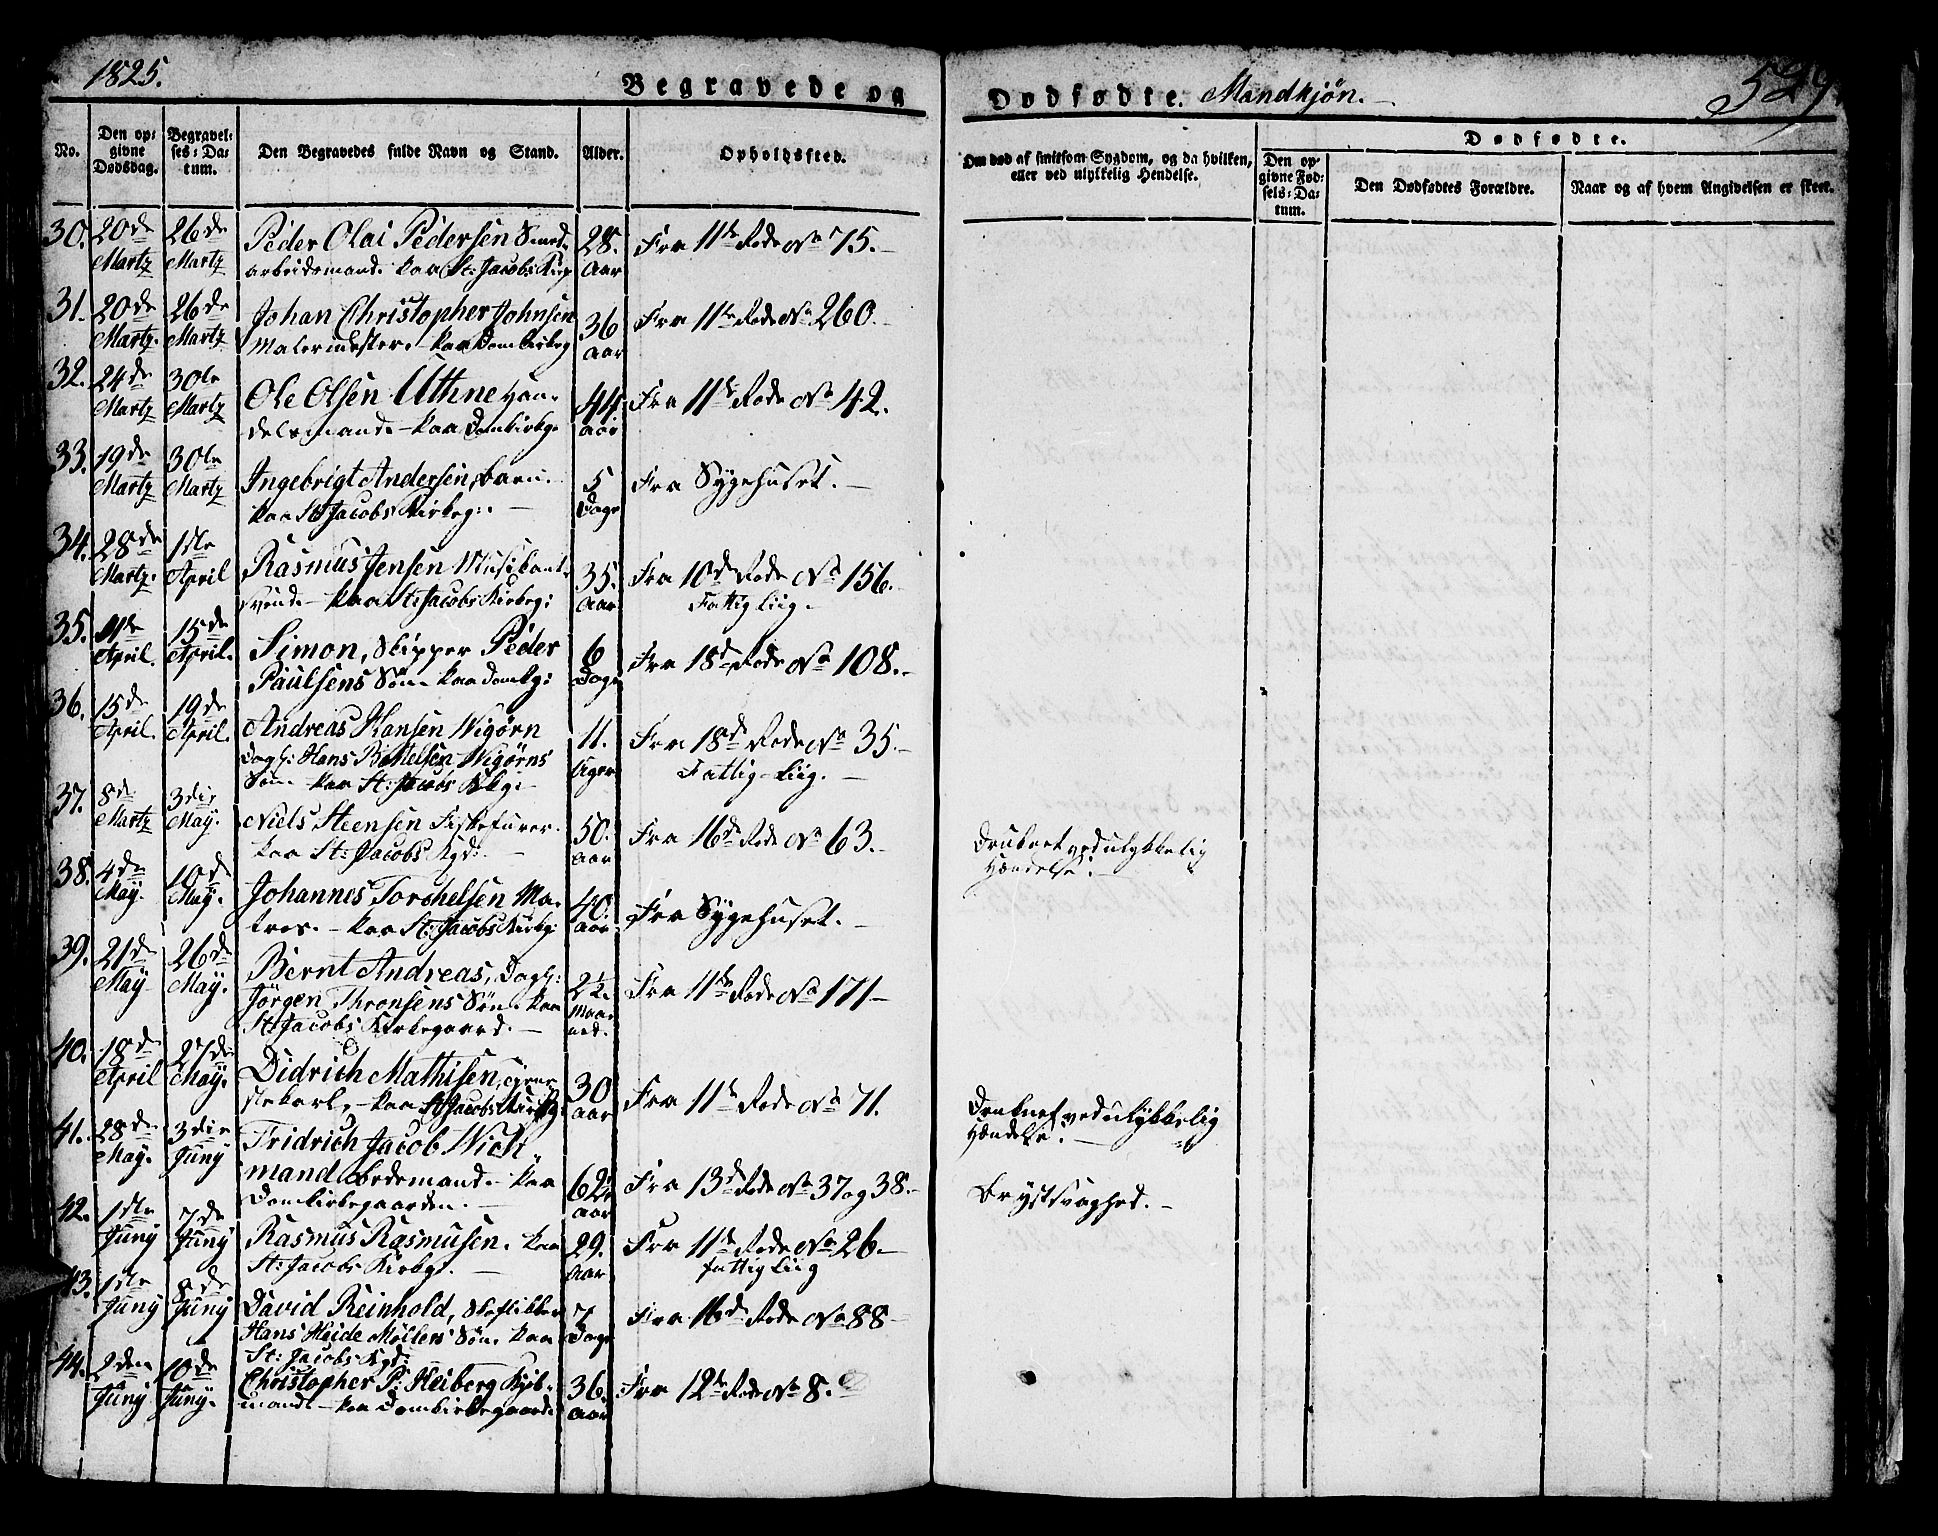 1825.
Begravede og
Dødfødte. Mandkjøn.
529.
No.
Den opgivne Dødsdag.
Begravelses-Datum.
Den Begravedes fulde Navn og Stand.
Alder.
Opholdssted.
Om død af smitsom Sygdom, og da hvilken, eller ved ulykkelig Hendelse.
Dødfødte.
Den opgivne Fødsels-Datum.
Den Dødfødtes Forældre.
Naar og af hvem Angivelsen er skeet.
30. 20de Martz 26de Martz Peder Olai Pedersen 28. Aar Fra 11te Rode No 75.
arbeidsmand. paa St: Jacobs Kirg
31. 20de Martz. 26de Martz Johan Christopher Johnsen 36 Aar Fra 11te Rode No 260.
Malermester. - paa Domkirkeg
32. 24de Martz 30te Martz Ole Olsen Uthne Han- 44. Aar Fra 11te Rode No 42.
delsmand. - paa Domkirkg.
33. 19de Martz 30te Martz Ingebrigt Andersen, barn. 5 Dage Fra Sygehuset.
paa St Jacobs Kirkeg:
34. 28de Martz. 1ste April Rasmus Jensen Musikant- 35. Aar Fra 10de Rode No 156.
svend. - paa St: Jacobs Kirkeg: Fattig Liig.
35. April. 15de April. Simon, Skipper Peder 6 Dage Fra 18de Rode No 108.
Paulsens Søn. paa Domkg:
36. 15de April. 19de April. Andreas Hansen Wigørn 11. Uger Fra 18de Rode No 35.
Dagl: Hans Bottelsen Wigørns Fattig-Liig.
Søn. - paa St: Jacobs Kkg:
37. 8de Martz 3die May. Niels Steensen 50. Aar Fra 16de Rode No 63. Druknet ved ulykkelig
paa St: Jacobs Kgd: Hændelse.
38. 4de May. 10de May. Johannes Torchelsen Ma- 40. Aar Fra Sygehuset.
tros. - paa St: Jacobs Kirkg:
39. 21de May 26de May. Bernt Andreas, Dagl: 2½ Maaned. Fra 11te Rode No 171
Jörgen Thronsens Søn. paa
St: Jacobs Kirkegaard.
40. 18de April 27de May. Didrich Mathisen, 30 Aar Fra 11te Rode No 71. Druknet ved ulykkelig
paa St Jacobs Kirkg: Hændelse.
41. 28de May. 3die Juny Fridrich Jacob Wich-
mand, bedemand. paa 62½ Aar Fra 13de Rode No 37 og 38. Brystsvaghed.
Domkirkegaarden.
42. 1ste Juny 7de Juny Rasmus Rasmusen. paa 29. Aar Fra 11te Rode No 26
St: Jacobs Kirkg. fattig Liig
43. 1ste Juny 8de Juny David Reinhold, Skoflikker 7 Dage Fra 16de Rode No 88
Hans Heide Møllers Søn. paa
St: Jacobs Kgd:
44. 2den Juny 10de Juny. Christopher P: Heiberg Kjøb- 36. Aar Fra 12te Rode No 8.
mand. - paa Domkirkegaarden